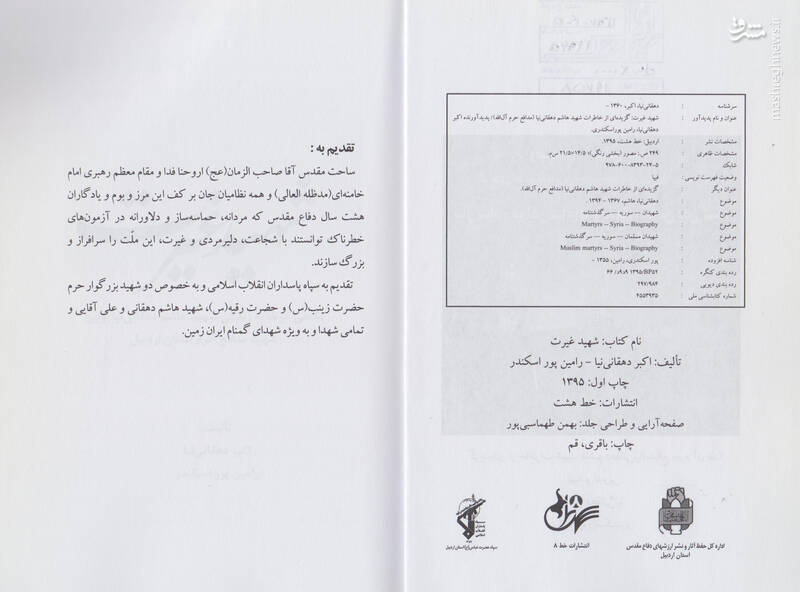 سرشناسه : دهقانی‌نیا، اکبر، ۱۳۶۰ -
عنوان و نام پدیدآور : شهید غیرت: گزیده‌ای از خاطرات شهید هاشم دهقانی‌نیا (مدافع حرم آل‌الله)/ پدیدآورنده اکبر
دهقانی‌نیا، رامین پوراسکندری.
مشخصات نشر : اردبیل: خط هشت، ۱۳۹۵.
مشخصات ظاهری : ۲۴۹ ص: مصور (بخشی رنگی)؛ ۱۴/۵×۲۱/۵ س‌م.
شابک : ۹۷۸-۶۰۰-۸۳۹۳-۲۷-۵
وضعیت فهرست نویسی : فیپا
عنوان دیگر : گزیده‌ای از خاطرات شهید هاشم دهقانی‌نیا (مدافع حرم آل‌الله).
موضوع : دهقانی‌نیا، هاشم، ۱۳۶۷ - ۱۳۹۴.
موضوع : شهیدان -- سوریه -- سرگذشتنامه
موضوع : Martyrs -- Syria -- Biography
موضوع : شهیدان مسلمان -- سوریه -- سرگذشتنامه
موضوع : Muslim martyrs -- Syria -- Biography
شناسه افزوده : پور اسکندری، رامین، ۱۳۵۵ -
رده بندی کنگره : ۱۳۹۵ ۹د۹ر/ BP۵۲/۶۶
رده بندی دیویی : ۲۹۷/۹۸۴
شماره کتابشناسی ملی : ۴۵۵۳۹۳۵
نام کتاب: شهید غیرت
تألیف: اکبر دهقانی‌نیا - رامین پور اسکندر
چاپ اول: ۱۳۹۵
انتشارات: خط هشت
صفحه‌آرایی و طراحی جلد: بهمن طهماسبی‌پور
چاپ: باقری، قم
اداره کل حفظ آثار و نشر ارزشهای دفاع مقدس
استان اردبیل
انتشارات خط ۸
سپاه حضرت عباس(ع) استان اردبیل
تقدیم به :
ساحت مقدس آقا صاحب الزمان(عج) اروحنا فدا و مقام معظم رهبری امام
خامنه‌ای(مدظله العالی) و همه نظامیان جان بر کف این مرز و بوم و یادگاران
هشت سال دفاع مقدس که مردانه، حماسه‌ساز و دلاورانه در آزمون‌های
خطرناک توانستند با شجاعت، دلیرمردی و غیرت، این ملّت را سرافراز و
بزرگ سازند.
تقدیم به سپاه پاسداران انقلاب اسلامی و به خصوص دو شهید بزرگوار حرم
حضرت زینب(س) و حضرت رقیه(س)، شهید هاشم دهقانی و علی آقایی و
تمامی شهدا و به ویژه شهدای گمنام ایران زمین.
مشرق
mashreghnews.ir